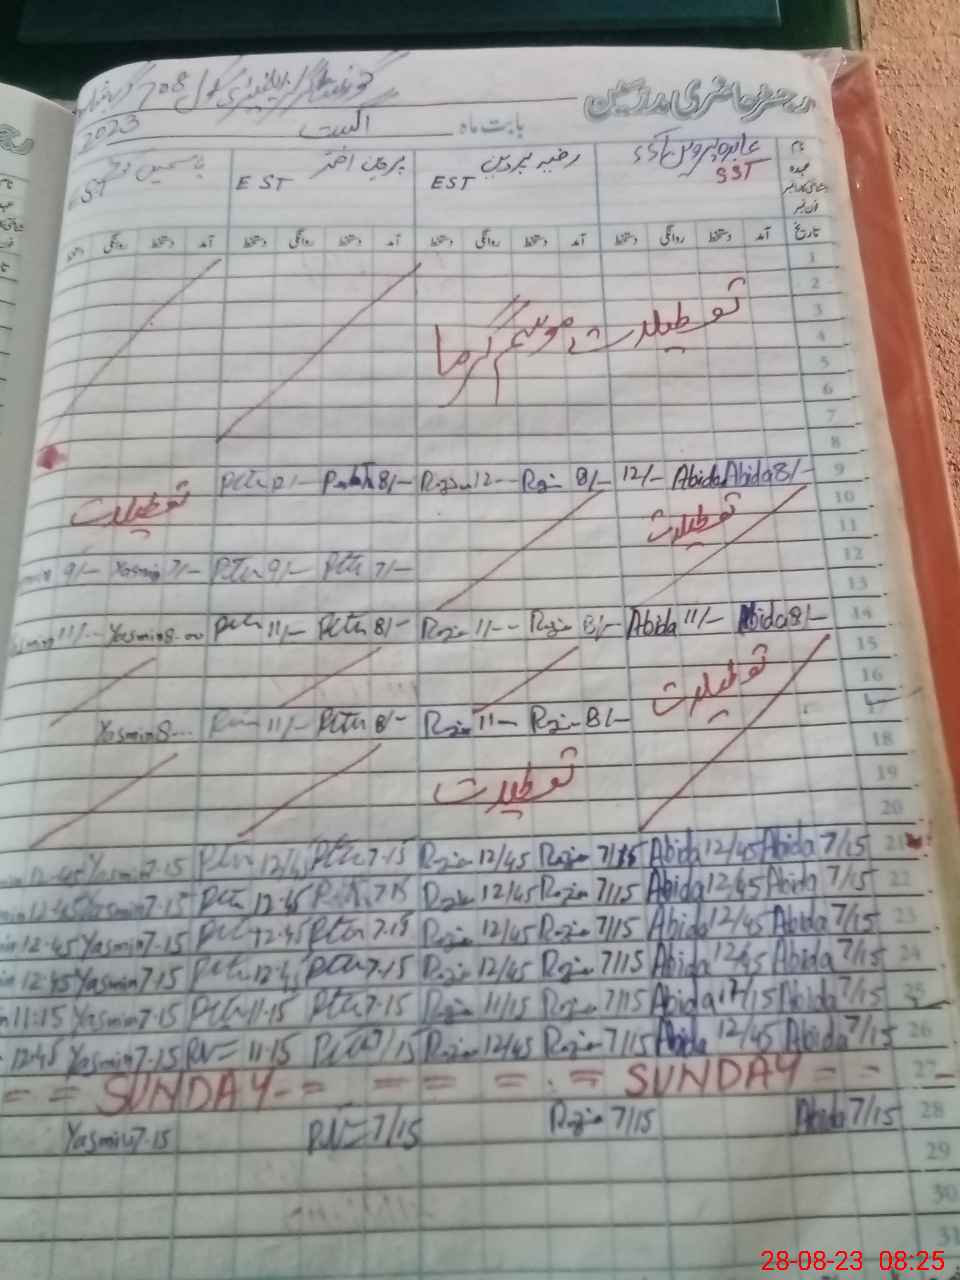 رجسٹر حاضری مدرسین
بابت ماہ اگست 2023
نام عابدہ پروین SST رضیہ پروین EST پروین اختر EST یاسمین EST
عہدہ
تاریخ آمد دستخط روانگی دستخط آمد دستخط روانگی دستخط آمد دستخط روانگی دستخط آمد دستخط روانگی دستخط
1
2
تعطیلات موسم گرما
3
4
5
6
7
8
9 Abida 8/- Abida 12/- Razia 8/- Razia 12--
تعطیلات تعطیلات
10
11
12 7/- 9/- Yasmin 7/- 9/-
13
14 Abida 8/- Abida 11/- Razia 8/- Razia 11-- 8/- 11/- Yasmin 8-00 Yasmin 11/--
15
تعطیلات
16
17 Razia 8/- Razia 11-- 8/- 11/- Yasmin 8---
18
تعطیلات
19
20
21 Abida 7/15 Abida 12/45 Razia 7/15 Razia 12/45 7-15 12/45 Yasmin 7-15 12-45
22 Abida 7/15 Abida 12/45 Razia 7/15 Razia 12/45 7-15 12-45 Yasmin 7-15 12-45
23 Abida 7/15 Abida 12/45 Razia 7/15 Razia 12/45 7-15 12-45 Yasmin 7-15 12-45
24 Abida 7/15 Abida 12/45 Razia 7/15 Razia 12/45 7-15 12-45 Yasmin 7-15 12-45
25 Abida 7/15 Abida 12/15 Razia 7/15 Razia 11/15 7-15 11-15 Yasmin 7-15 11-15
26 Abida 7/15 Abida 12/45 Razia 7/15 Razia 12/45 7/15 11-15 Yasmin 7-15 12-45
27 SUNDAY SUNDAY
28 Abida 7/15 Razia 7/15 7/15 Yasmin 7-15
29
30
31
28-08-23 08:25